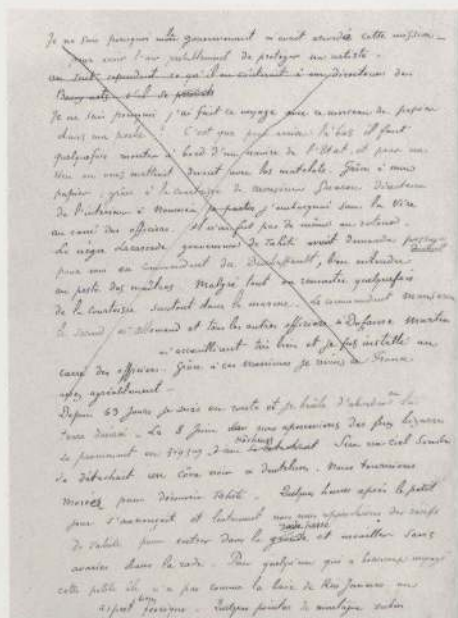 Je ne sais pourquoi le gouvernement m'avait accordé cette mission —
pour avoir l'air probablement de protéger un artiste.
Je ne sais pourquoi j'ai fait ce voyage avec ce morceau de papier
dans ma poche! C'est que pour arriver là-bas il faut
quelquefois monter à bord d'un navire de l'Etat et
on vous mettrait avec les matelots. Grâce à mon
papier, grâce à la courtoisie de monsieur Directeur
de l'intérieur à Nouméa j'embarquai sur la Vire
au carré des officiers. Il n'en fut pas de même au retour.
Le nègre Lacascade gouverneur de Tahiti avait demandé passage
pour moi au commandant du bien entendu
au poste des maîtres. Malgré tout on rencontre quelquefois
de la courtoisie surtout dans la marine. Le commandant
le second et tous les autres officiers
m'accueillirent très bien et je fus installé au
carré des officiers. Grâce à ces messieurs je revins en France
assez agréablement —
Depuis 63 jours je suis en route et je brûle d'aborder la
terre désirée. Le 8 Juin nous apercevions des feux bizarres
se promenant en zigzag: des pêcheurs. Sur un ciel sombre
se détachait un cône noir à dentelures. Nous tournions
Moréa pour découvrir Tahiti. Quelques heures après le petit
jour s'annonçait et lentement nous nous approchions des récifs
de Tahiti pour entrer dans la passe et mouiller sans
avaries dans la rade. Pour quelqu'un qui a beaucoup voyagé
cette petite île n'a pas comme la baie de Rio Janeiro un
aspect féerique. Quelques pointes de montagne